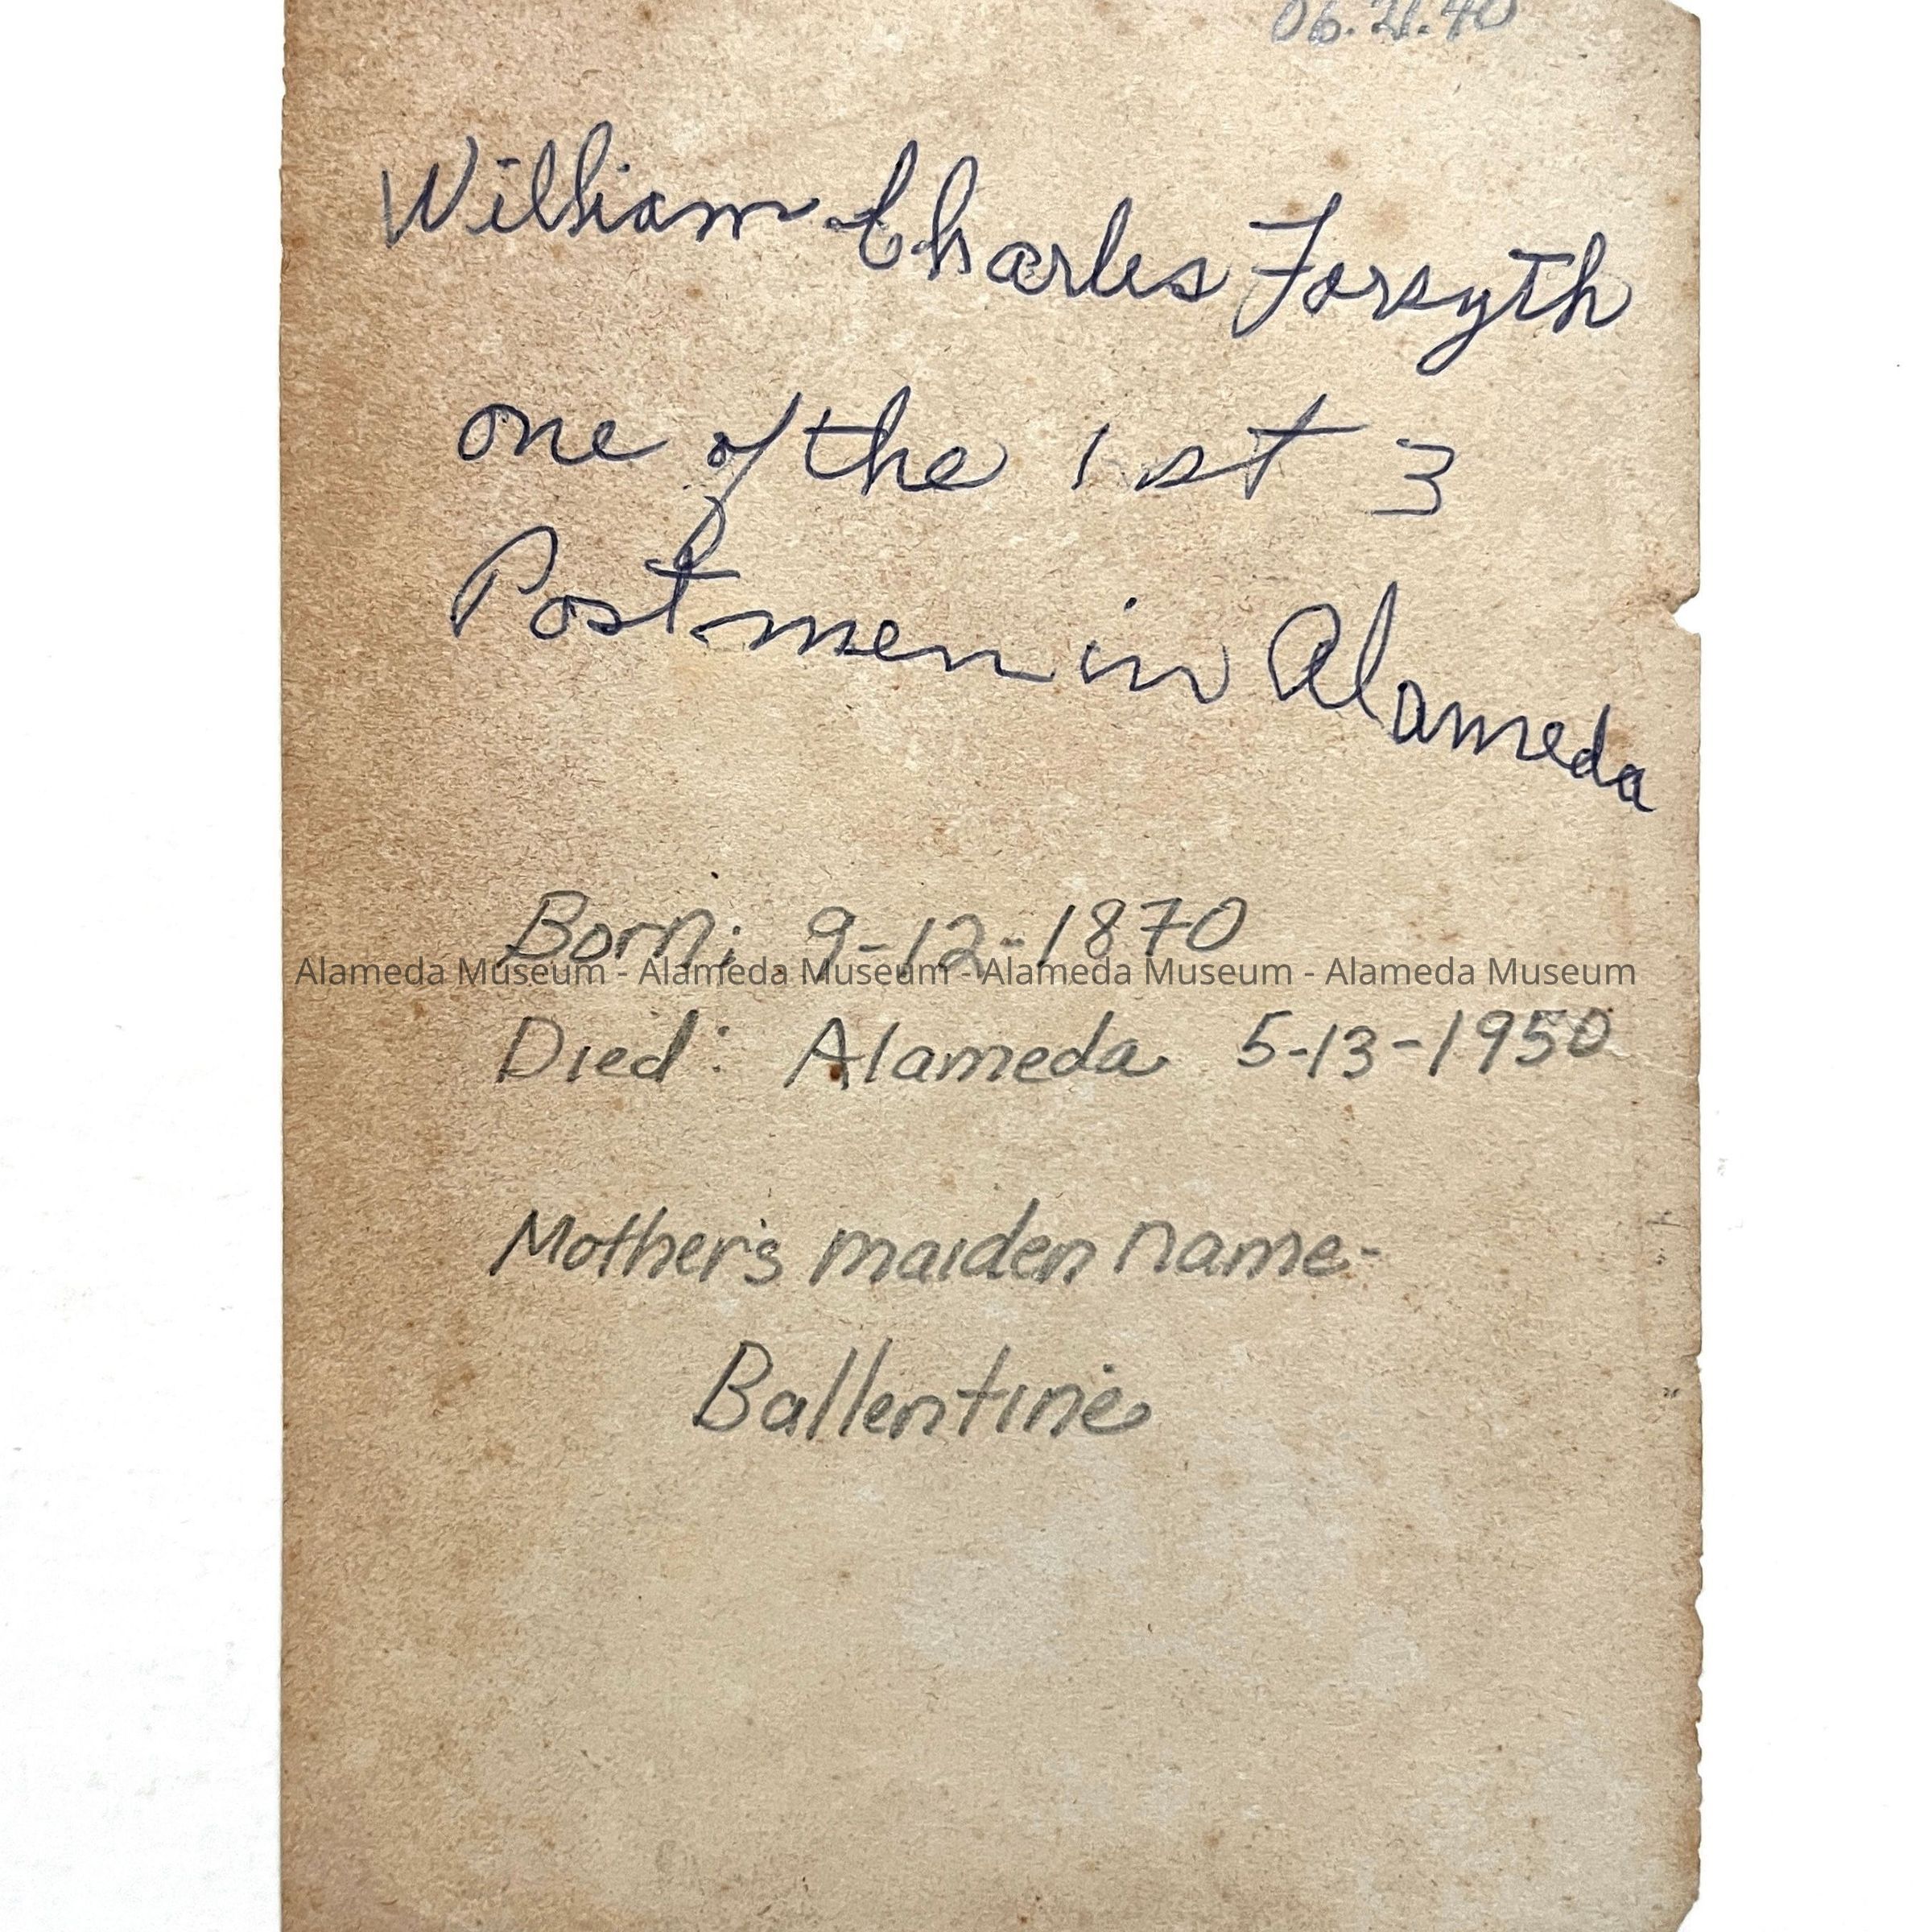 06.21.40
William Charles Forsyth
one of the 1st 3
Postmen in Alameda
Born: 9-12-1870
Alameda Museum - Alameda Museum - Alameda Museum - Alameda Museum
Died: Alameda 5-13-1950
Mother's maiden name-
Ballentine